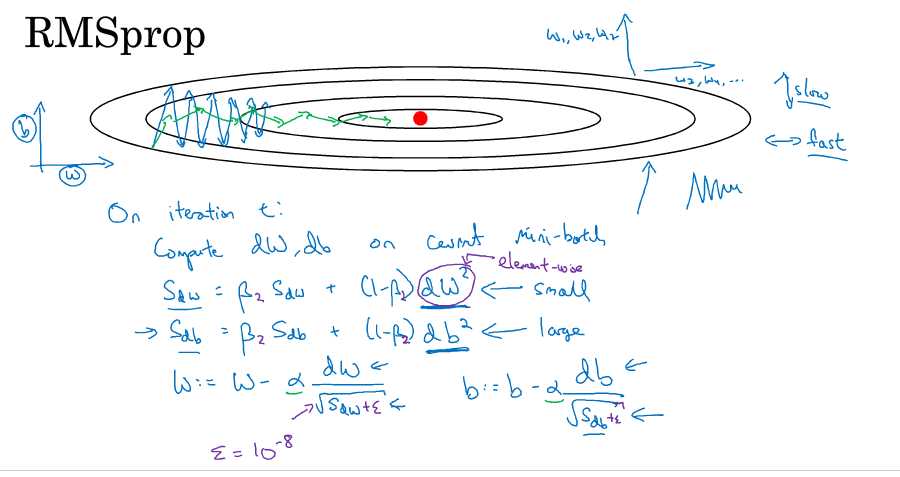 RMSprop
w₁, w₂, w₂
w₃, w₄, ...
slow
b
fast
w
On iteration t:
Compute dW, db on current mini-batch
element-wise
S_dw = β₂ S_dw + (1-β₂) dW² ← small
→ S_db = β₂ S_db + (1-β₂) db² ← large
W := W - α dW / √S_dw+ε ←
b := b - α db / √S_db+ε ←
ε = 10⁻⁸